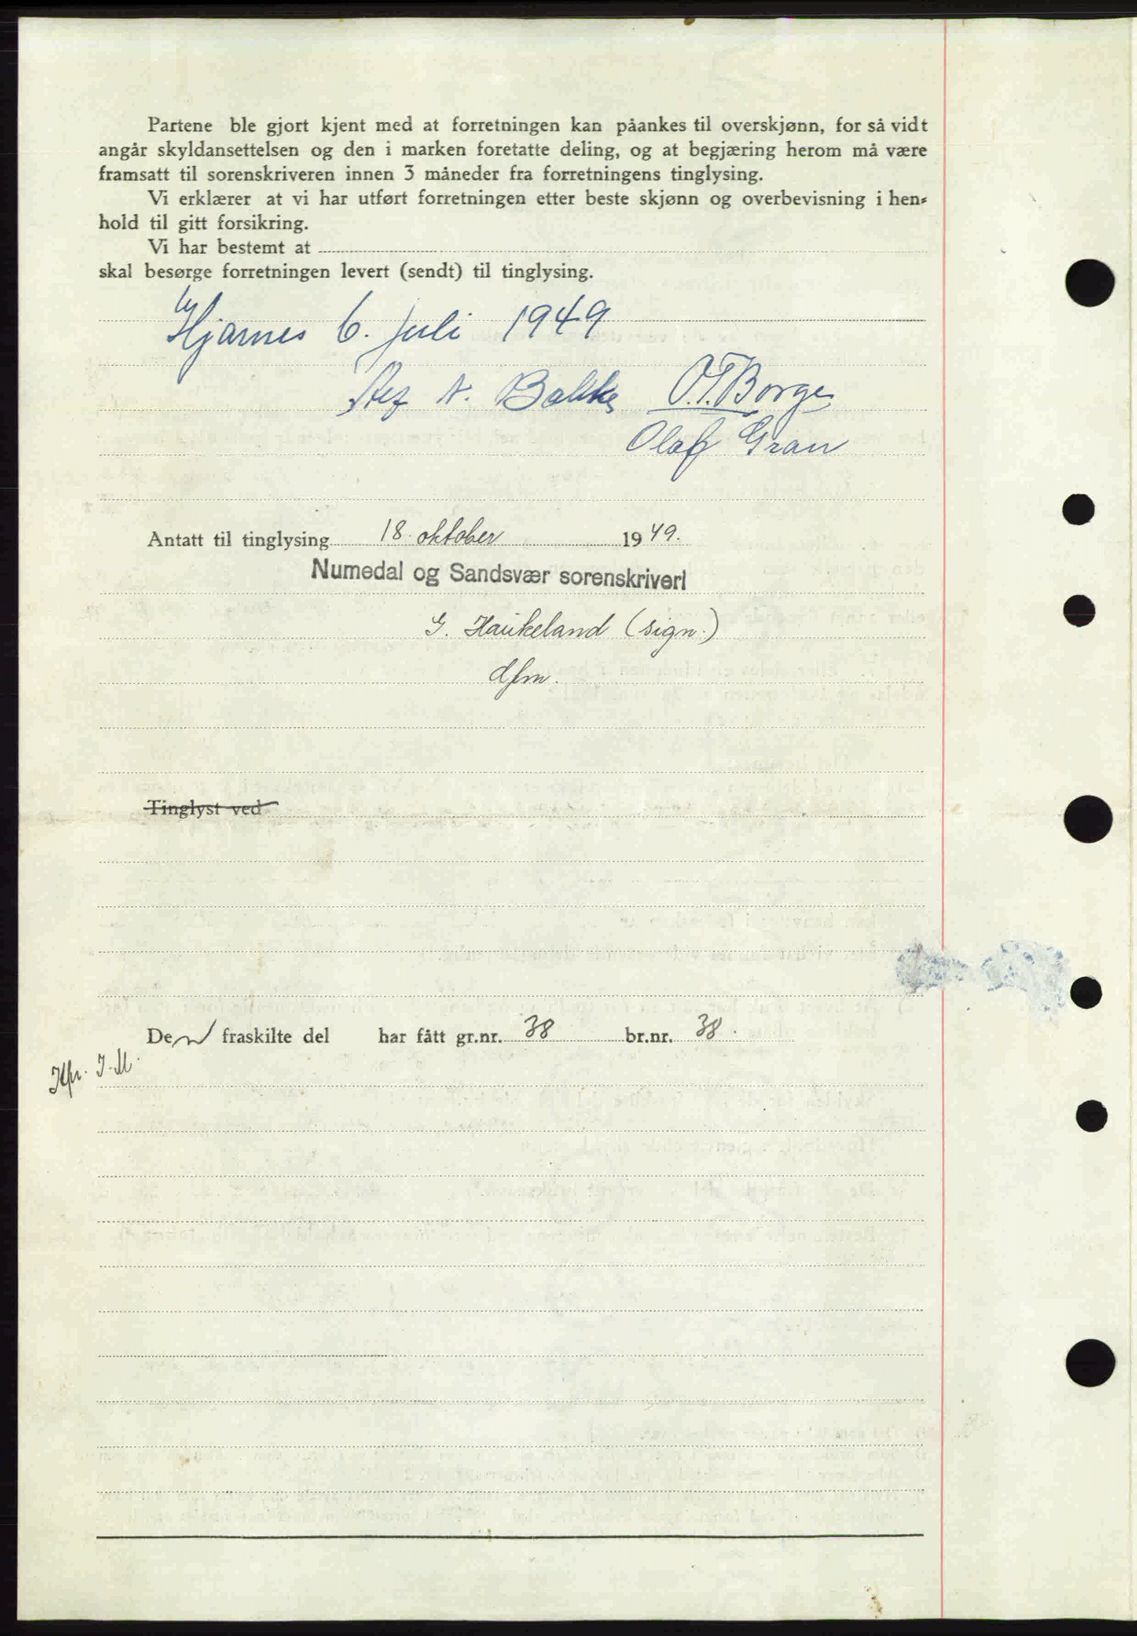 Partene ble gjort kjent med at forretningen kan påankes til overskjønn, for så vidt
angår skyldansettelsen og den i marken foretatte deling, og at begjæring herom må være
framsatt til sorenskriveren innen 3 måneder fra forretningens tinglysing.
Vi erklærer at vi har utført forretningen etter beste skjønn og overbevisning i hen-
hold til gitt forsikring.
Vi har bestemt at
skal besørge forretningen levert (sendt) til tinglysing.
Hjarnes 6. juli 1949
N. Bakke O.T. Borge
Olaf Gran
Antatt til tinglysing 18. oktober 1949.
Numedal og Sandsvær sorenskriveri
G. Haukeland (sign.)
dfm.
Tinglyst ved
Den fraskilte del har fått gr.nr. 38 br.nr. 38.